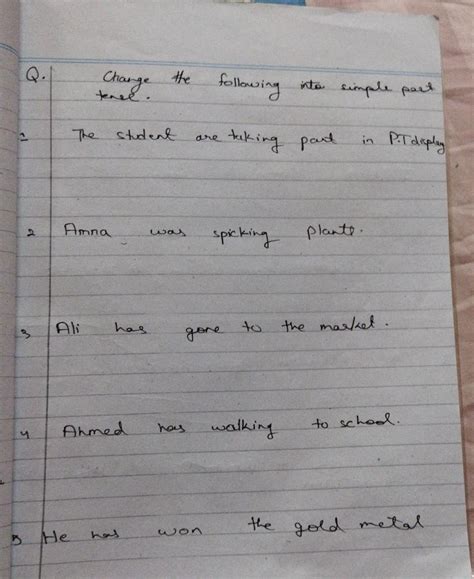 Q. Change the following into simple past
tense.
1 The student are taking part in P.T display
2 Amna was spicking plants.
3 Ali has gone to the market.
4 Ahmed has walking to school.
5 He has won the gold metal